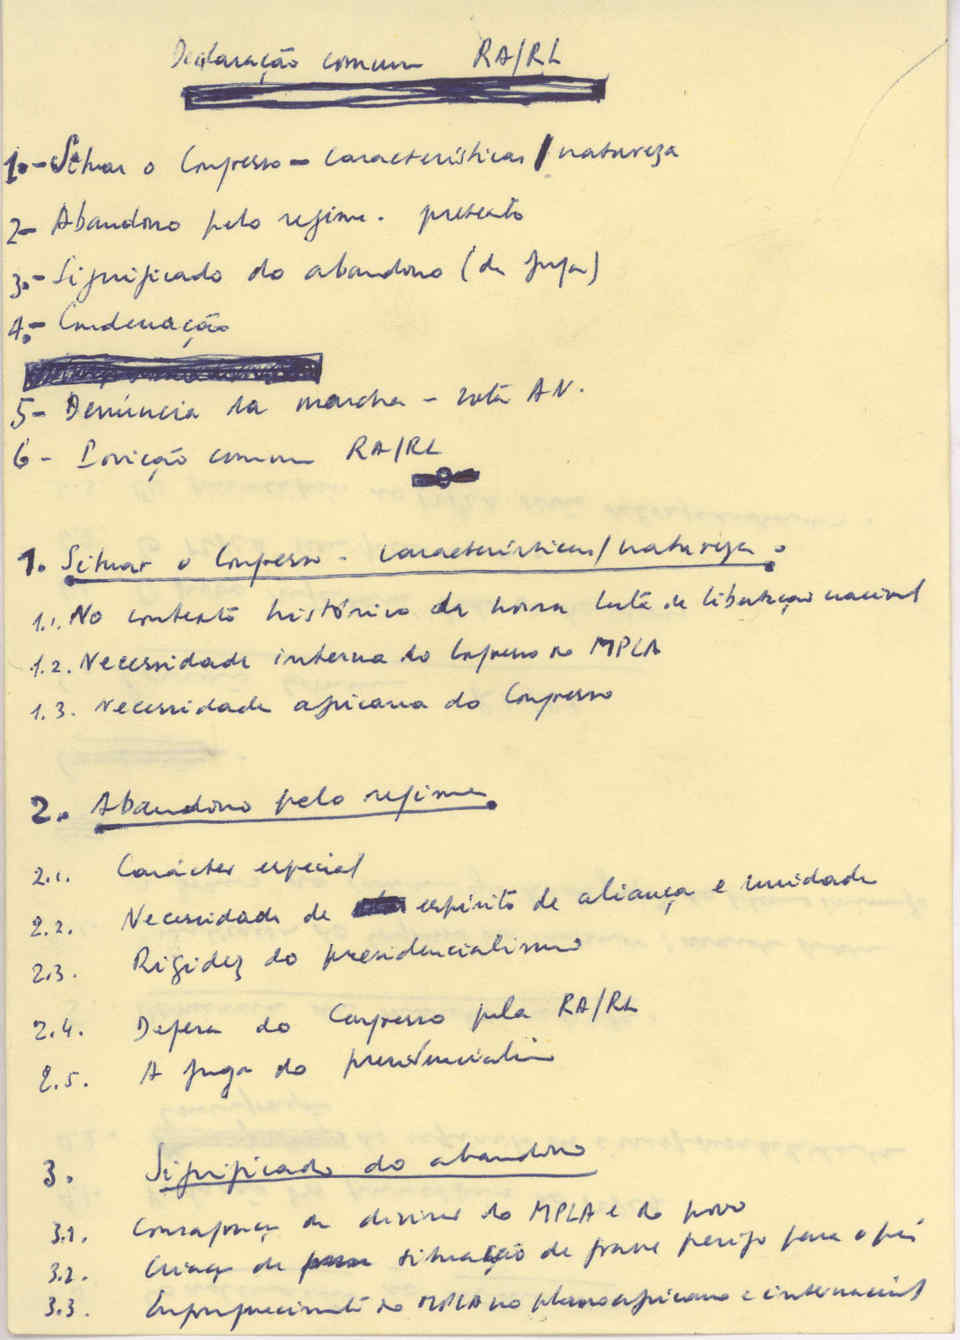 Declaração comum RA/RL
1.- Situar o Congresso - características/natureza
2- Abandono pelo regime. pretexto
3.- Significado do abandono (da fuga)
4.- Condenação
5- Denúncia da marcha - rota AN.
6- Posição comum RA/RL
1. Situar o Congresso - características/natureza
1.1. No contexto histórico da nossa luta de libertação nacional
1.2. Necessidade interna do Congresso no MPLA
1.3. Necessidade africana do Congresso
2. Abandono pelo regime
2.1. Carácter especial
2.2. Necessidade de espírito de aliança e unidade
2.3. Rigidez do presidencialismo
2.4. Defesa do Congresso pela RA/RL
2.5. A fuga do
3. Significado do abandono
3.1. da divisão do MPLA e do povo
3.2. Criação de situação de grave perigo para o país
3.3. Enfraquecimento do MPLA no plano africano e internacional